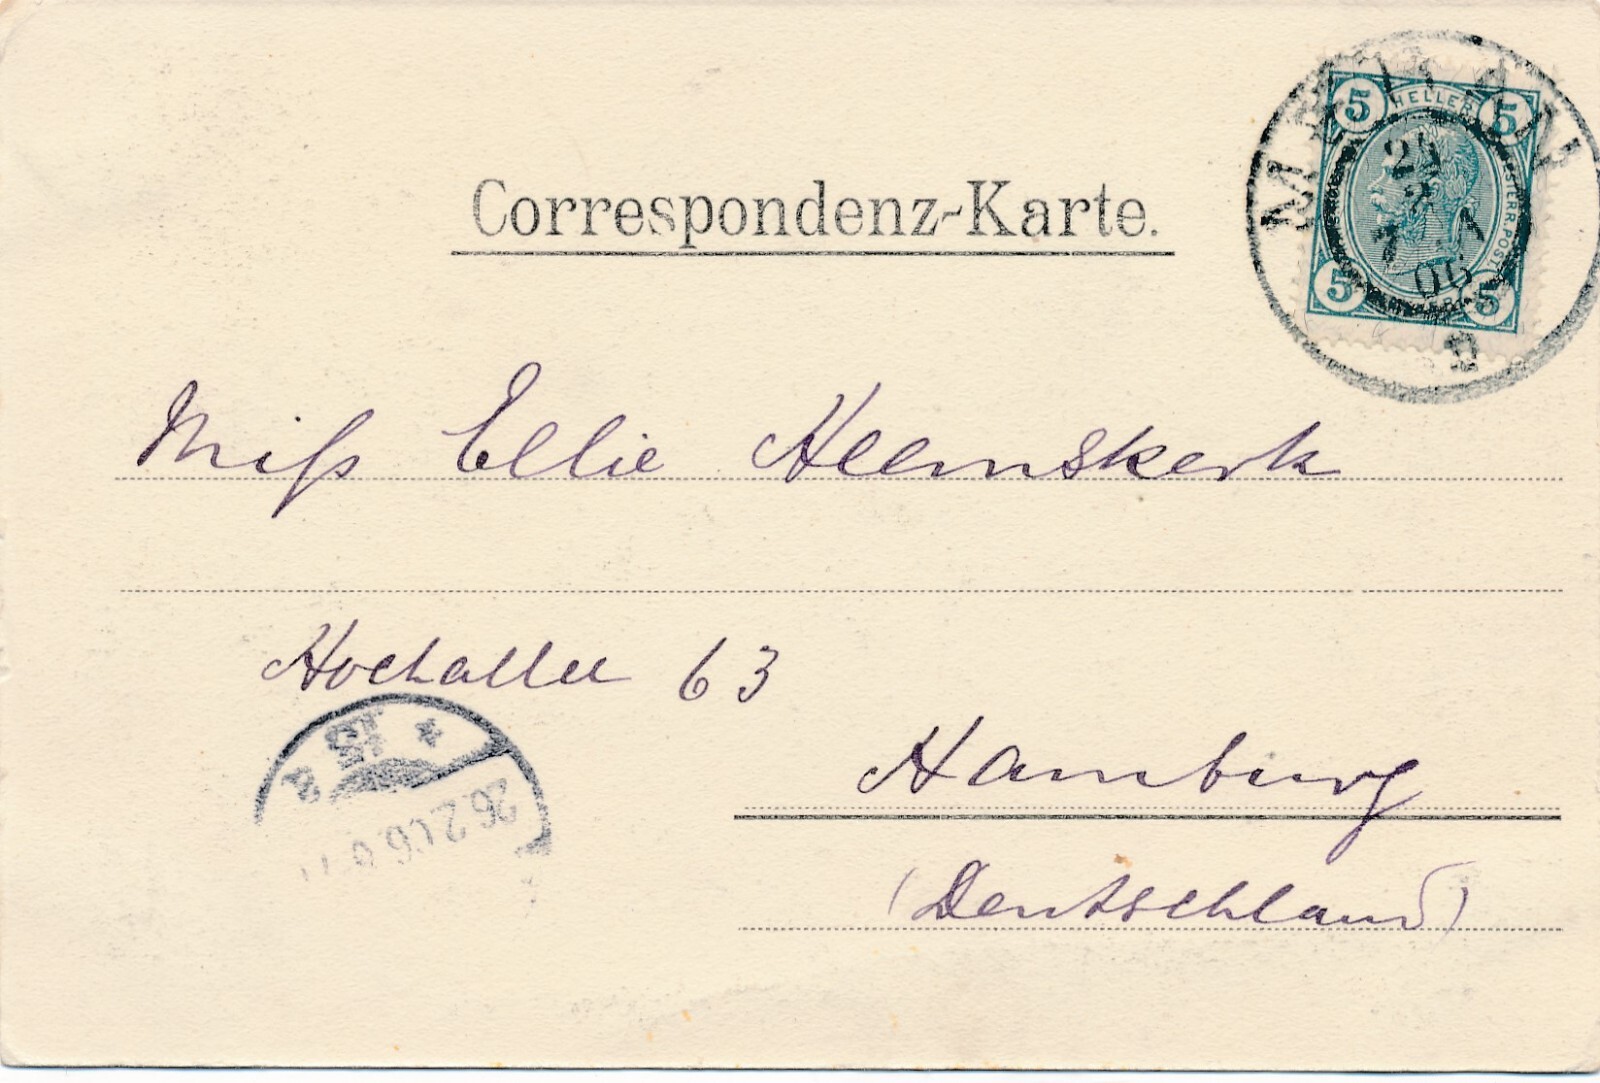 Correspondenz-Karte.
5 HELLER 5
5 5
06
Miſs Ellie Heemskerk
Hochallee 63
Hamburg
(Deutschland)
* 13
26.2.06.